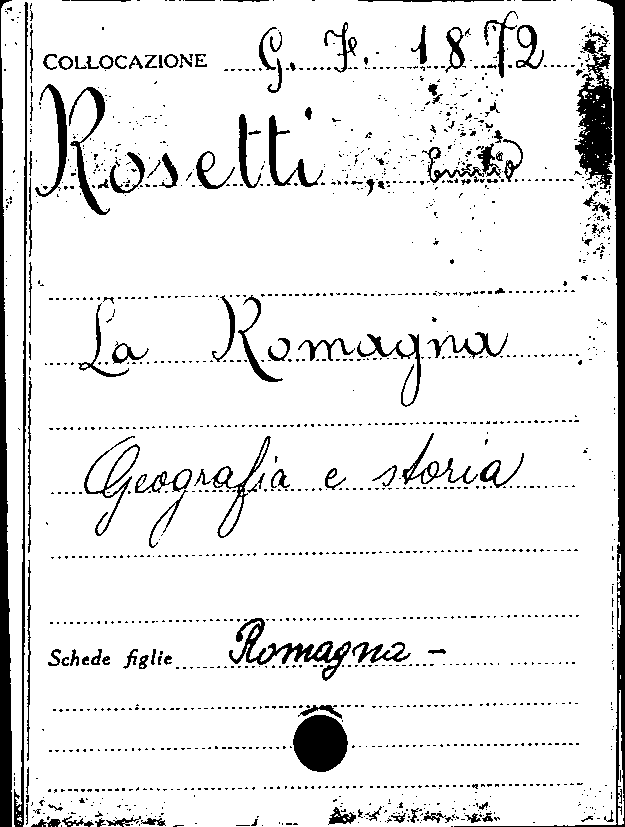 COLLOCAZIONE G. F. 1872
Rosetti, Emilio
La Romagna
Geografia e storia
Schede figlie Romagna -